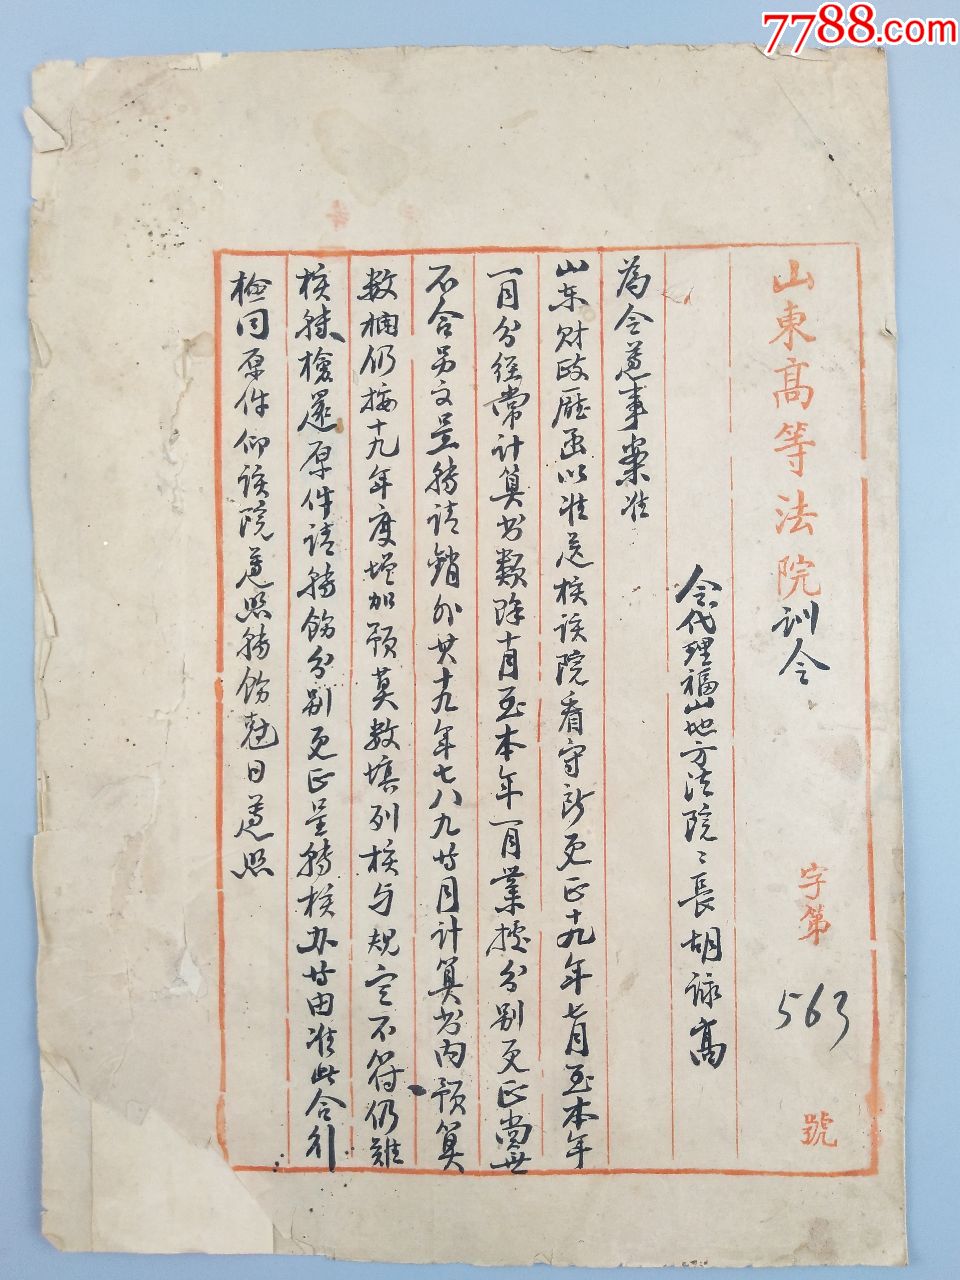 7788.com
山東高等法院訓令 字第563號
令代理福山地方法院〻長胡詠高
為令遵事案准
山東財政廳函以准送核該院看守所更正十九年七月至本年
一月分經常計算書類除十月至本年一月業據分別更正尚無
不合另文呈轉請銷外其十九年七八九等月計算書內預算
數欄仍按十九年度增加預算數填列核與規定不符仍難
核轉檢還原件請轉飭分別更正呈轉核办等由准此合行
檢同原件仰該院遵照轉飭尅日遵照